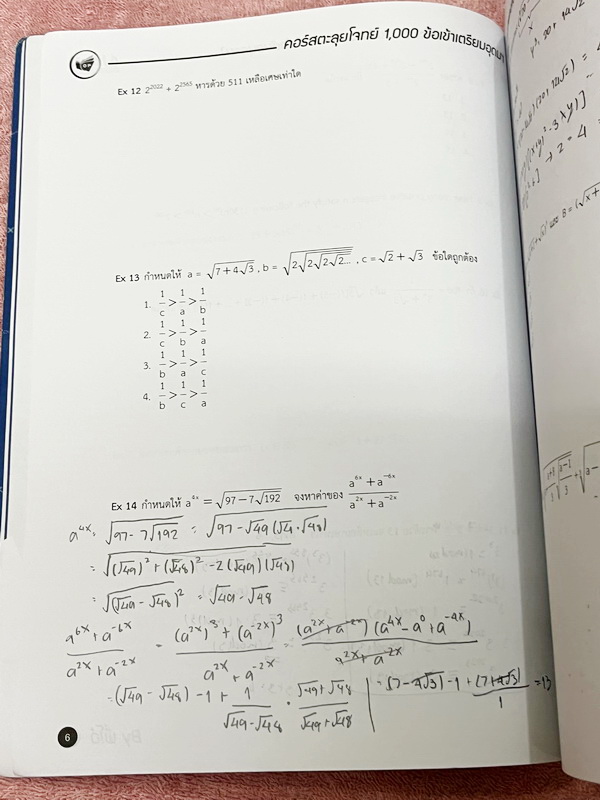 คอร์สตะลุยโจทย์ 1,000 ข้อเข้าเตรียมอุดมฯ
Ex 12 2^2022 + 2^2565 หารด้วย 511 เหลือเศษเท่าใด
Ex 13 กำหนดให้ a = √(7+4√3) , b = √(2√(2√(2√(2...)))) , c = √2 + √3 ข้อใดถูกต้อง
1. 1/c > 1/a > 1/b
2. 1/c > 1/b > 1/a
3. 1/b > 1/a > 1/c
4. 1/b > 1/c > 1/a
Ex 14 กำหนดให้ a^6x = √(97−7√192) จงหาค่าของ (a^6x + a^-6x)/(a^2x + a^-2x)
a^4x = √(97-7√192) = √(97-√49(√4·√48))
= √((√49)²+(√48)²-2(√49)(√48))
= √((√49-√48)²) = √49-√48
(a^6x+a^-6x)/(a^2x+a^-2x) = ((a^2x)³+(a^-2x)³)/(a^2x+a^-2x) = (a^2x+a^-2x)(a^4x-a^0+a^-4x)/(a^2x+a^-2x)
=(√49-√48)-1+ 1/(√49-√48) · (√49+√48)/(√49+√48) =(7-4√3)-1+(7+4√3)/1=13
6